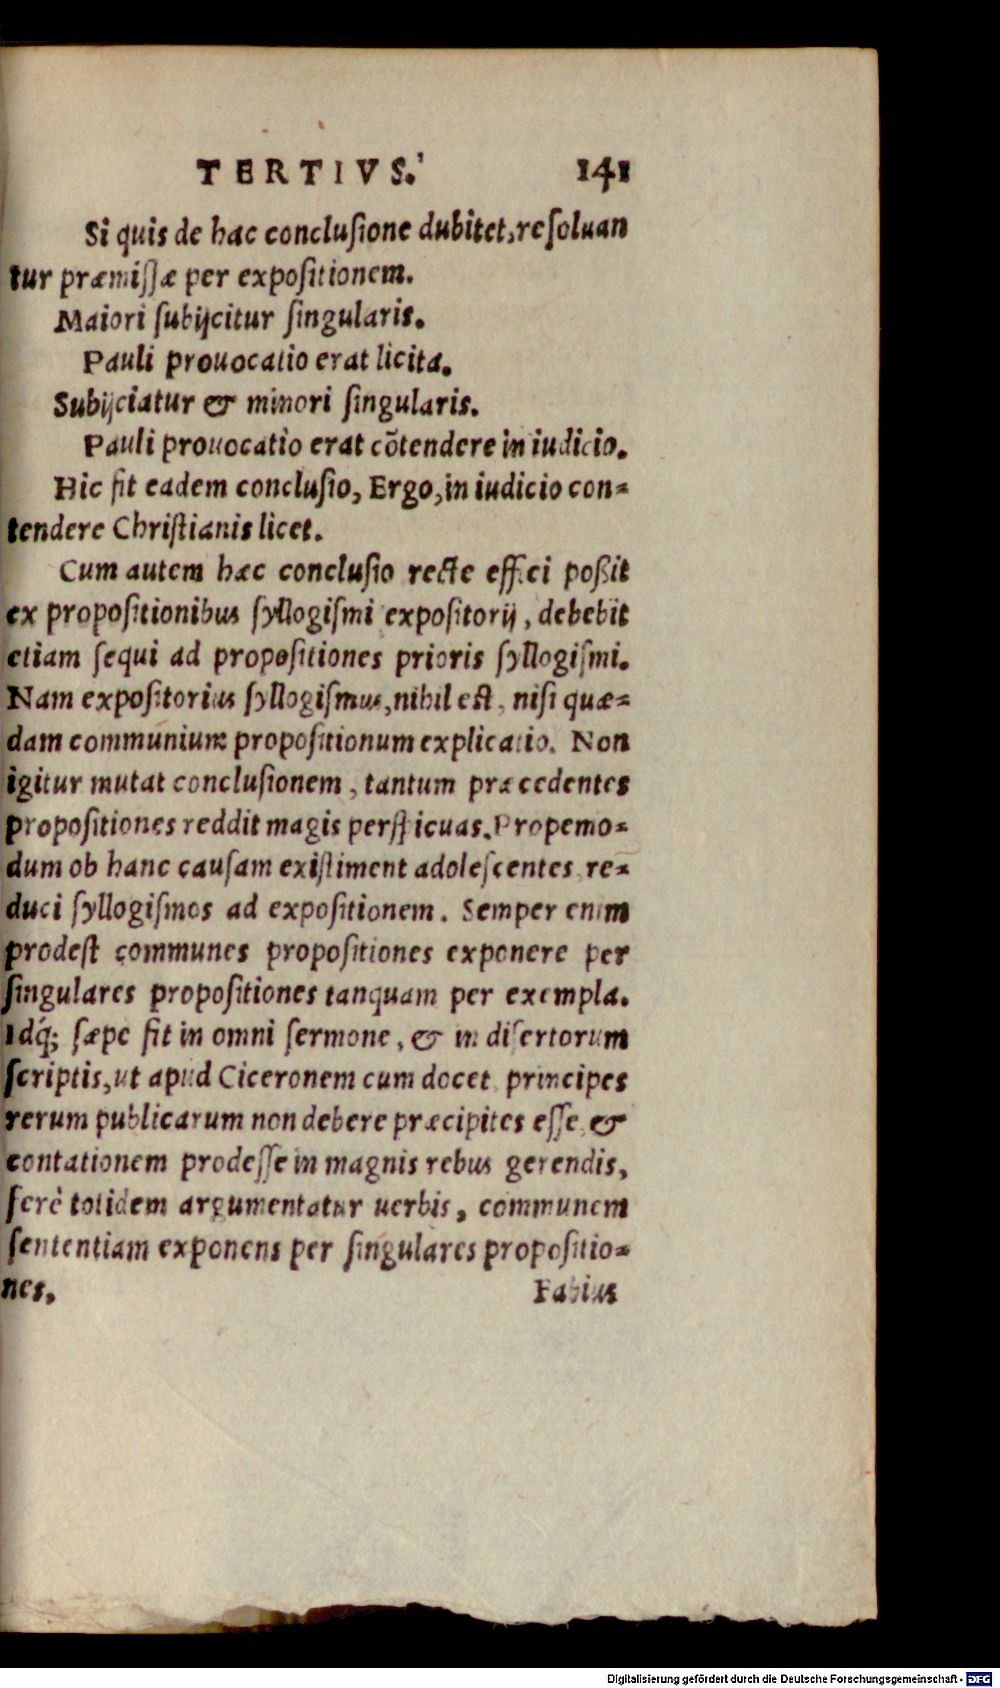 TERTIVS. 141
Si quis de hac conclusione dubitet, resoluan
tur præmissæ per expositionem.
Maiori subijcitur singularis.
Pauli prouocatio erat licita.
Subijciatur & minori singularis.
Pauli prouocatio erat cõtendere in iudicio.
Hic fit eadem conclusio, Ergo, in iudicio con=
tendere Christianis licet.
Cum autem hæc conclusio recte effici poßit
ex propositionibus syllogismi expositorij, debebit
etiam sequi ad propositiones prioris syllogismi.
Nam expositorius syllogismus, nihil est, nisi quæ=
dam communium propositionum explicatio. Non
igitur mutat conclusionem, tantum præcedentes
propositiones reddit magis perspicuas. Propemo=
dum ob hanc causam existiment adolescentes re=
duci syllogismos ad expositionem. Semper enim
prodest communes propositiones exponere per
singulares propositiones tanquam per exempla.
Idq́; sæpe fit in omni sermone, & in disertorum
scriptis, ut apud Ciceronem cum docet principes
rerum publicarum non debere præcipites esse &
contationem prodesse in magnis rebus gerendis,
ferè totidem argumentatur uerbis, communem
sententiam exponens per singulares propositio=
nes. Fabius
Digitalisierung gefördert durch die Deutsche Forschungsgemeinschaft - DFG